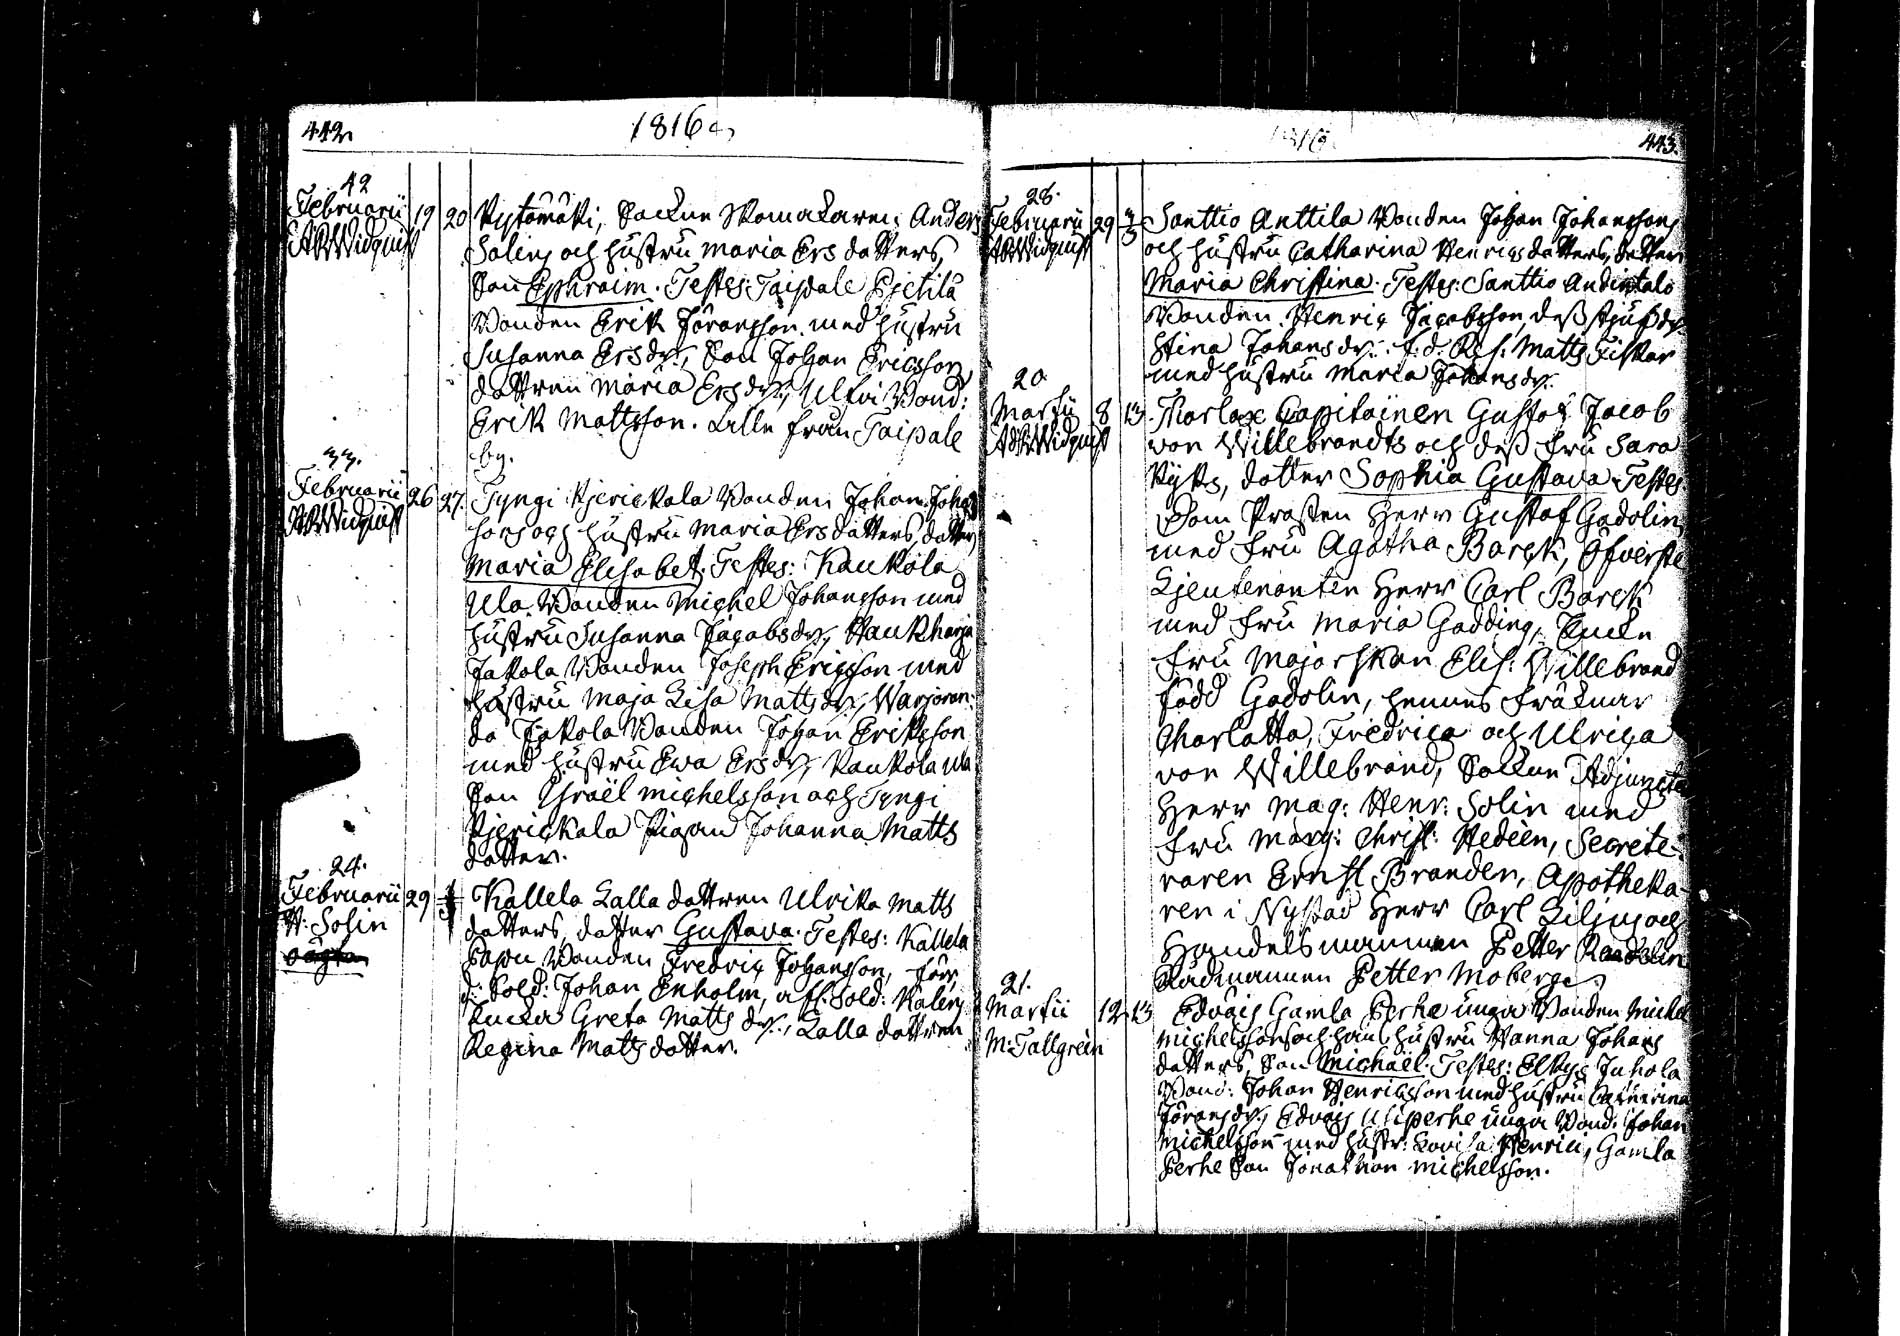 442
1816
42
Februarii 19 20 Kytömäki, Sockne Skomakaren Anders
A R Widquist
Salins och hustru Maria Ers datters,
Son Ephraim. Testes: Taipale Ejctilä
Bonden Erik Jöransson med hustru
Susanna Ersdr, Son Johan Ericsson
dottren Maria Ersdr, Ulfvi Bond:
Erik Mattsson. Lille från Taipale
by.
33.
Februarii 26 27. Tyngi Kjerickala Bonden Johan Johans
A R Widquist
sons och hustru Maria Ers datters, datter
Maria Elisabet. Testes: Kaukola
Ula Bonden Michel Johansson med
hustru Susanna Jacobsdr, Haukharja
Jakola Bonden Joseph Ericsson med
hustru Maja Lisa Mattsdr, Warjoran-
da Jakola Bonden Johan Eriksson
med hustru Ewa Ersdr, Kaukola Ula
Son Israël Michelsson och Tyngi
Kjerickala Pigan Johanna Matts
datter.
24.
Februarii 29 1/3 Kallela Lalla dottren Ulrika Matts
H: Solin
datters, datter Gustava. Testes: Kallela
Bonden Fredric Johansson, förr
d: Sold: Johan Enholm, afl: Sold:
Encka Greta Mattsdr, Lalla dottren
Regina Mattsdotter.
1816
443.
28.
Februarii 29 3/3 Santtio Anttila Bonden Johan Johanssons
A R Widquist
och hustru Catharina Henrics datters, datter
Maria Christina. Testes: Santtio Andintalo
Bonden Henric Jacobsson, dess stjufdr
Stina Johansdr. f.d. Res: Matts Fiskar
med hustru Maria Johansdr.
20.
Martii 8 13. Tharlax Capitainen Gustaf Jacob
Ad R Widquist
von Willebrandts och dess fru Sara
Kyks, dotter Sophia Gustava. Testes
Dom Prosten Herr Gustaf Gadolin,
med fru Agatha Barck, Öfverste
Lieutenanten Herr Carl Barck
med fru Maria Gadding, Encke
fru Majorskan Elis: Willebrand
född Gadolin, hennes fröknar
Charlotta, Fredrica och Ulrica
von Willebrand, Sockne Adjuncten
Herr Mag: Henr: Solin med
fru Marg: Christ: Hedeen, Secrete-
raren Ernst Brander, Apotheka-
ren i Nystad Herr Carl Liljus och
Handelsmannen Petter
Rådmannen Petter Moberg.
21.
Martii 12 13 Edväis Gamla Perhe unga Bonden Michel
M: Tallgrein
Michelssons och hans hustru Hanna Johans
datters, Son Michaël. Testes: Elkys Juhola
Bond: Johan Henricsson med hustru Catharina
Jöransdr, Edväis Uliperhe unga Bond: Johan
Michelsson med hustr: Lovisa Henrici, Gamla
Perhe Son Jonathan Michelsson.